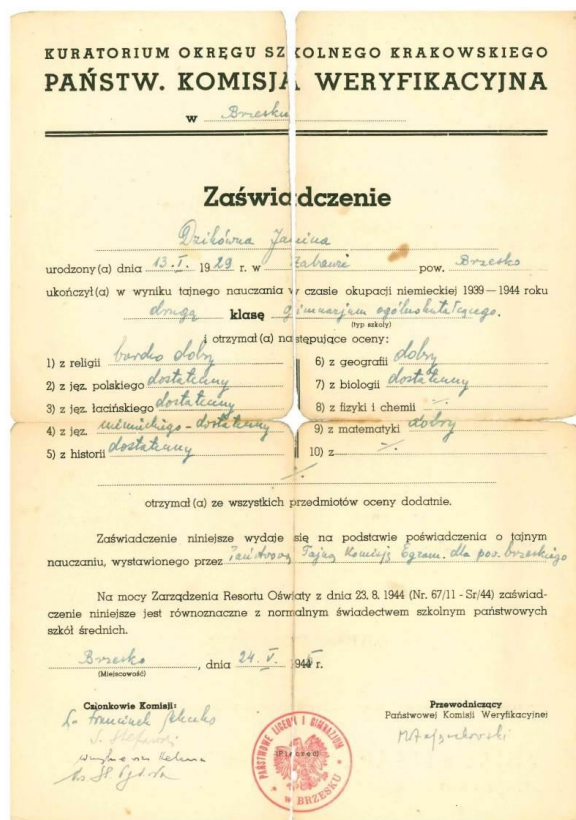 KURATORIUM OKRĘGU SZKOLNEGO KRAKOWSKIEGO
PAŃSTW. KOMISJA WERYFIKACYJNA
w Brzesku
Zaświadczenie
Dzikówna Janina
urodzony(a) dnia 13.I. 1929 r. w Zabawie pow. Brzesko
ukończył(a) w wyniku tajnego nauczania w czasie okupacji niemieckiej 1939—1944 roku
drugą klasę gimnazjum ogólnokształcącego.
(typ szkoły)
i otrzymał(a) następujące oceny:
1) z religii bardzo dobry
2) z jęz. polskiego dostateczny
3) z jęz. łacińskiego dostateczny
4) z jęz. niemieckiego - dostateczny
5) z historii dostateczny
6) z geografii dobry
7) z biologii dostateczny
8) z fizyki i chemii
9) z matematyki dobry
10) z
otrzymał(a) ze wszystkich przedmiotów oceny dodatnie.
Zaświadczenie niniejsze wydaje się na podstawie poświadczenia o tajnym
nauczaniu, wystawionego przez Państwową Tajną Komisję Egzam. dla pow. brzeskiego
Na mocy Zarządzenia Resortu Oświaty z dnia 23. 8. 1944 (Nr. 67/11 - Sr/44) zaświad-
czenie niniejsze jest równoznaczne z normalnym świadectwem szkolnym państwowych
szkół średnich.
Brzesko, dnia 24. V. 1945 r.
(Miejscowość)
Członkowie Komisji:
Przewodniczący
Państwowej Komisji Weryfikacyjnej
(Pieczęć)
PAŃSTWOWE LICEUM I GIMNAZJUM
w BRZESKU